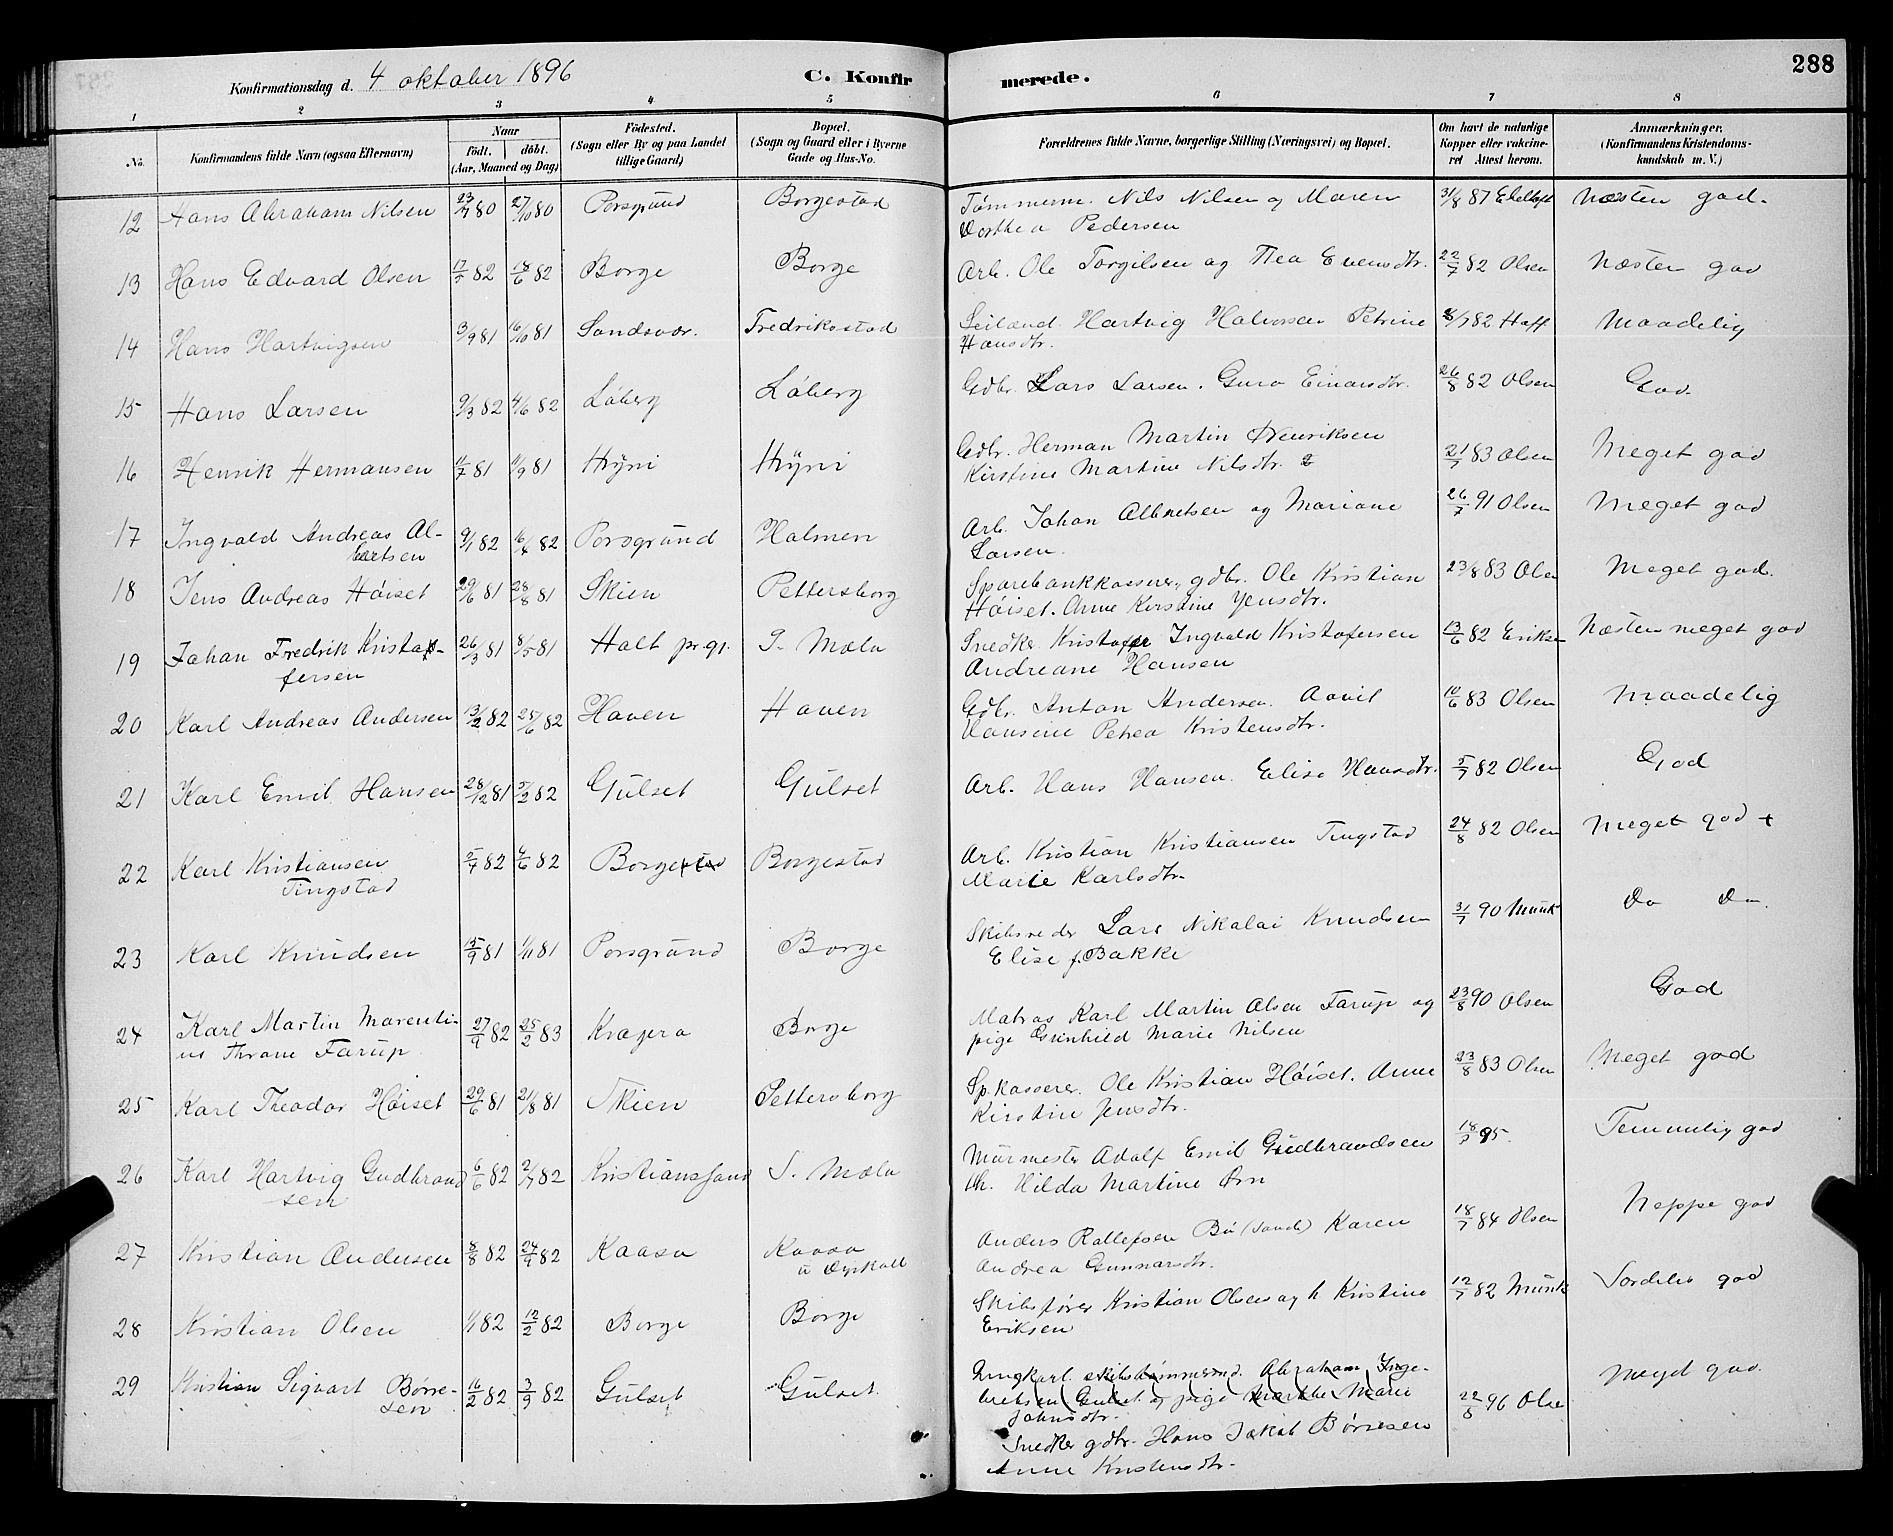 288
Konfirmationsdag d. 4 oktober 1896 C. Konfirmerede.
1 2 3 4 5 6 7 8
No. Konfirmandens fulde Navn (ogsaa Efternavn) Naar Födt. döbt. (Aar, Maaned og Dag) Födested. (Sogn eller By og paa Landet tillige Gaard) Bopæl. (Sogn og Gaard eller i Byerne Gade og Hus-No. Forældrenes fulde Navne, borgerlige Stilling (Næringsvei) og Bopæl. Om havt de naturlige Kopper eller vakcineret Attest herom. Anmærkninger. (Konfirmandens Kristendomskundskab m. V.)
12 Hans Abraham Nilsen 23/7 80 27/10 80 Porsgrund Borgestad Tömmerm. Nils Nilsen og Maren 31/8 87 Næsten god.
Dorthea Pedersen
13 Hans Edvard Olsen 82 18/6 82 Borge Borge Arb. Ole Torgilsen og Thea Evensdtr. 22/7 82 Olsen Næsten god
14 Hans Hartvigsen 3/9 81 16/10 81 Sandsvær. Fredrikostad Hartvig Halvorsen Petrine 8/7 82 Hoff Maadelig
Hansdtr.
15 Hans Larsen 9/3 82 4/6 82 Löberg Löberg Gdbr. Lars Larsen. Guro Einarsdtr. 26/8 82 Olsen God.
16 Henrik Hermansen 11/7 81 11/9 81 Hÿni Hÿni Gdbr. Herman Martin Henriksen
Kirstine Martine Nilsdtr. 21/7 83 Olsen Meget god
17 Ingvald Andreas Al- 9/1 82 16/4 82 Porsgrund Holmen Arb. Johan Albretsen og Mariane 26/7 91 Olsen Meget god
bertsen Larsen.
18 Jens Andreas Höiset 29/6 81 28/8 81 Skien Pettersborg Sparebankkasserer, gdbr. Ole Kristian 23/8 83 Olsen Meget god.
Höiset. Anne Kirstine Jensdtr.
19 Johan Fredrik Kristof- 26/3 81 8/5 81 Holt pr.gj. S. Mæla Snedker Kristofer Ingvald Kristofersen 13/6 82 Eriksen Næsten meget god
fersen Andreane Hansen
20 Karl Andreas Andersen 13/2 82 25/6 82 Haven Haven Gdbr. Anton Andersen. 10/6 83 Olsen Maadelig
Hansine Petrea Kristensdtr.
21 Karl Emil Hansen 28/12 81 5/2 82 Gulset Gulset Arb. Hans Hansen. Elise Hansdtr. 5/7 82 Olsen God
22 Karl Kristiansen 82 4/6 82 Borgestad Borgestad Arb. Kristian Kristiansen Tingstad 24/8 82 Olsen Meget god +
Tingstad Marie Karlsdtr.
23 Karl Knudsen 15/9 81 1/11 81 Porsgrund Borge Skibsreder Lars Nikolai Knudsen 31/7 90 Munk Do Do.
Elise f. Bakke
24 Karl Martin Marenti- 27/9 82 25/2 83 Kragerø Borge Matros Karl Martin Olsen Farup og 23/8 90 Olsen God
us Thrane Farup. pige Gunhild Marie Nilsen
25 Karl Theodor Höiset 29/6 81 21/8 81 Skien Pettersborg Sp.kasserer. Ole Kristian Höiset. Anne 23/8 83 Olsen Meget god
Kirstine Jensdtr.
26 Karl Hartvig Gudbrand 6/6 82 2/7 82 Kristianssand S. Mæla Murmester Adolf Emil Gudbrandsen 18/7 95. Temmelig god
sen h. Hilda Martine Örn
27 Kristian Andersen 8/8 82 24/9 82 Kaasa Kaasa Anders Rollefsen Bö (Sande) Karen 18/7 84 Olsen Neppe god
u Dyrkoll Andrea Gunnarsdtr.
28 Kristian Olsen 1/1 82 12/2 82 Borge Borge Skibsförer Kristian Olsen og h Kristine 12/7 82 Munk Særdeles god
Eriksen
29 Kristian Sigvart Börre- 16/2 82 3/9 82 Gulset Gulset. Ungkarl skibstömmermd. Abraham Inge-
sen bretsen Gulset og pige Marthe Marie 22/8 96 Olse Meget god.
Johnsdtr.
Snedker gdbr. Hans Jakob Börresen
Anne Kristensdtr.